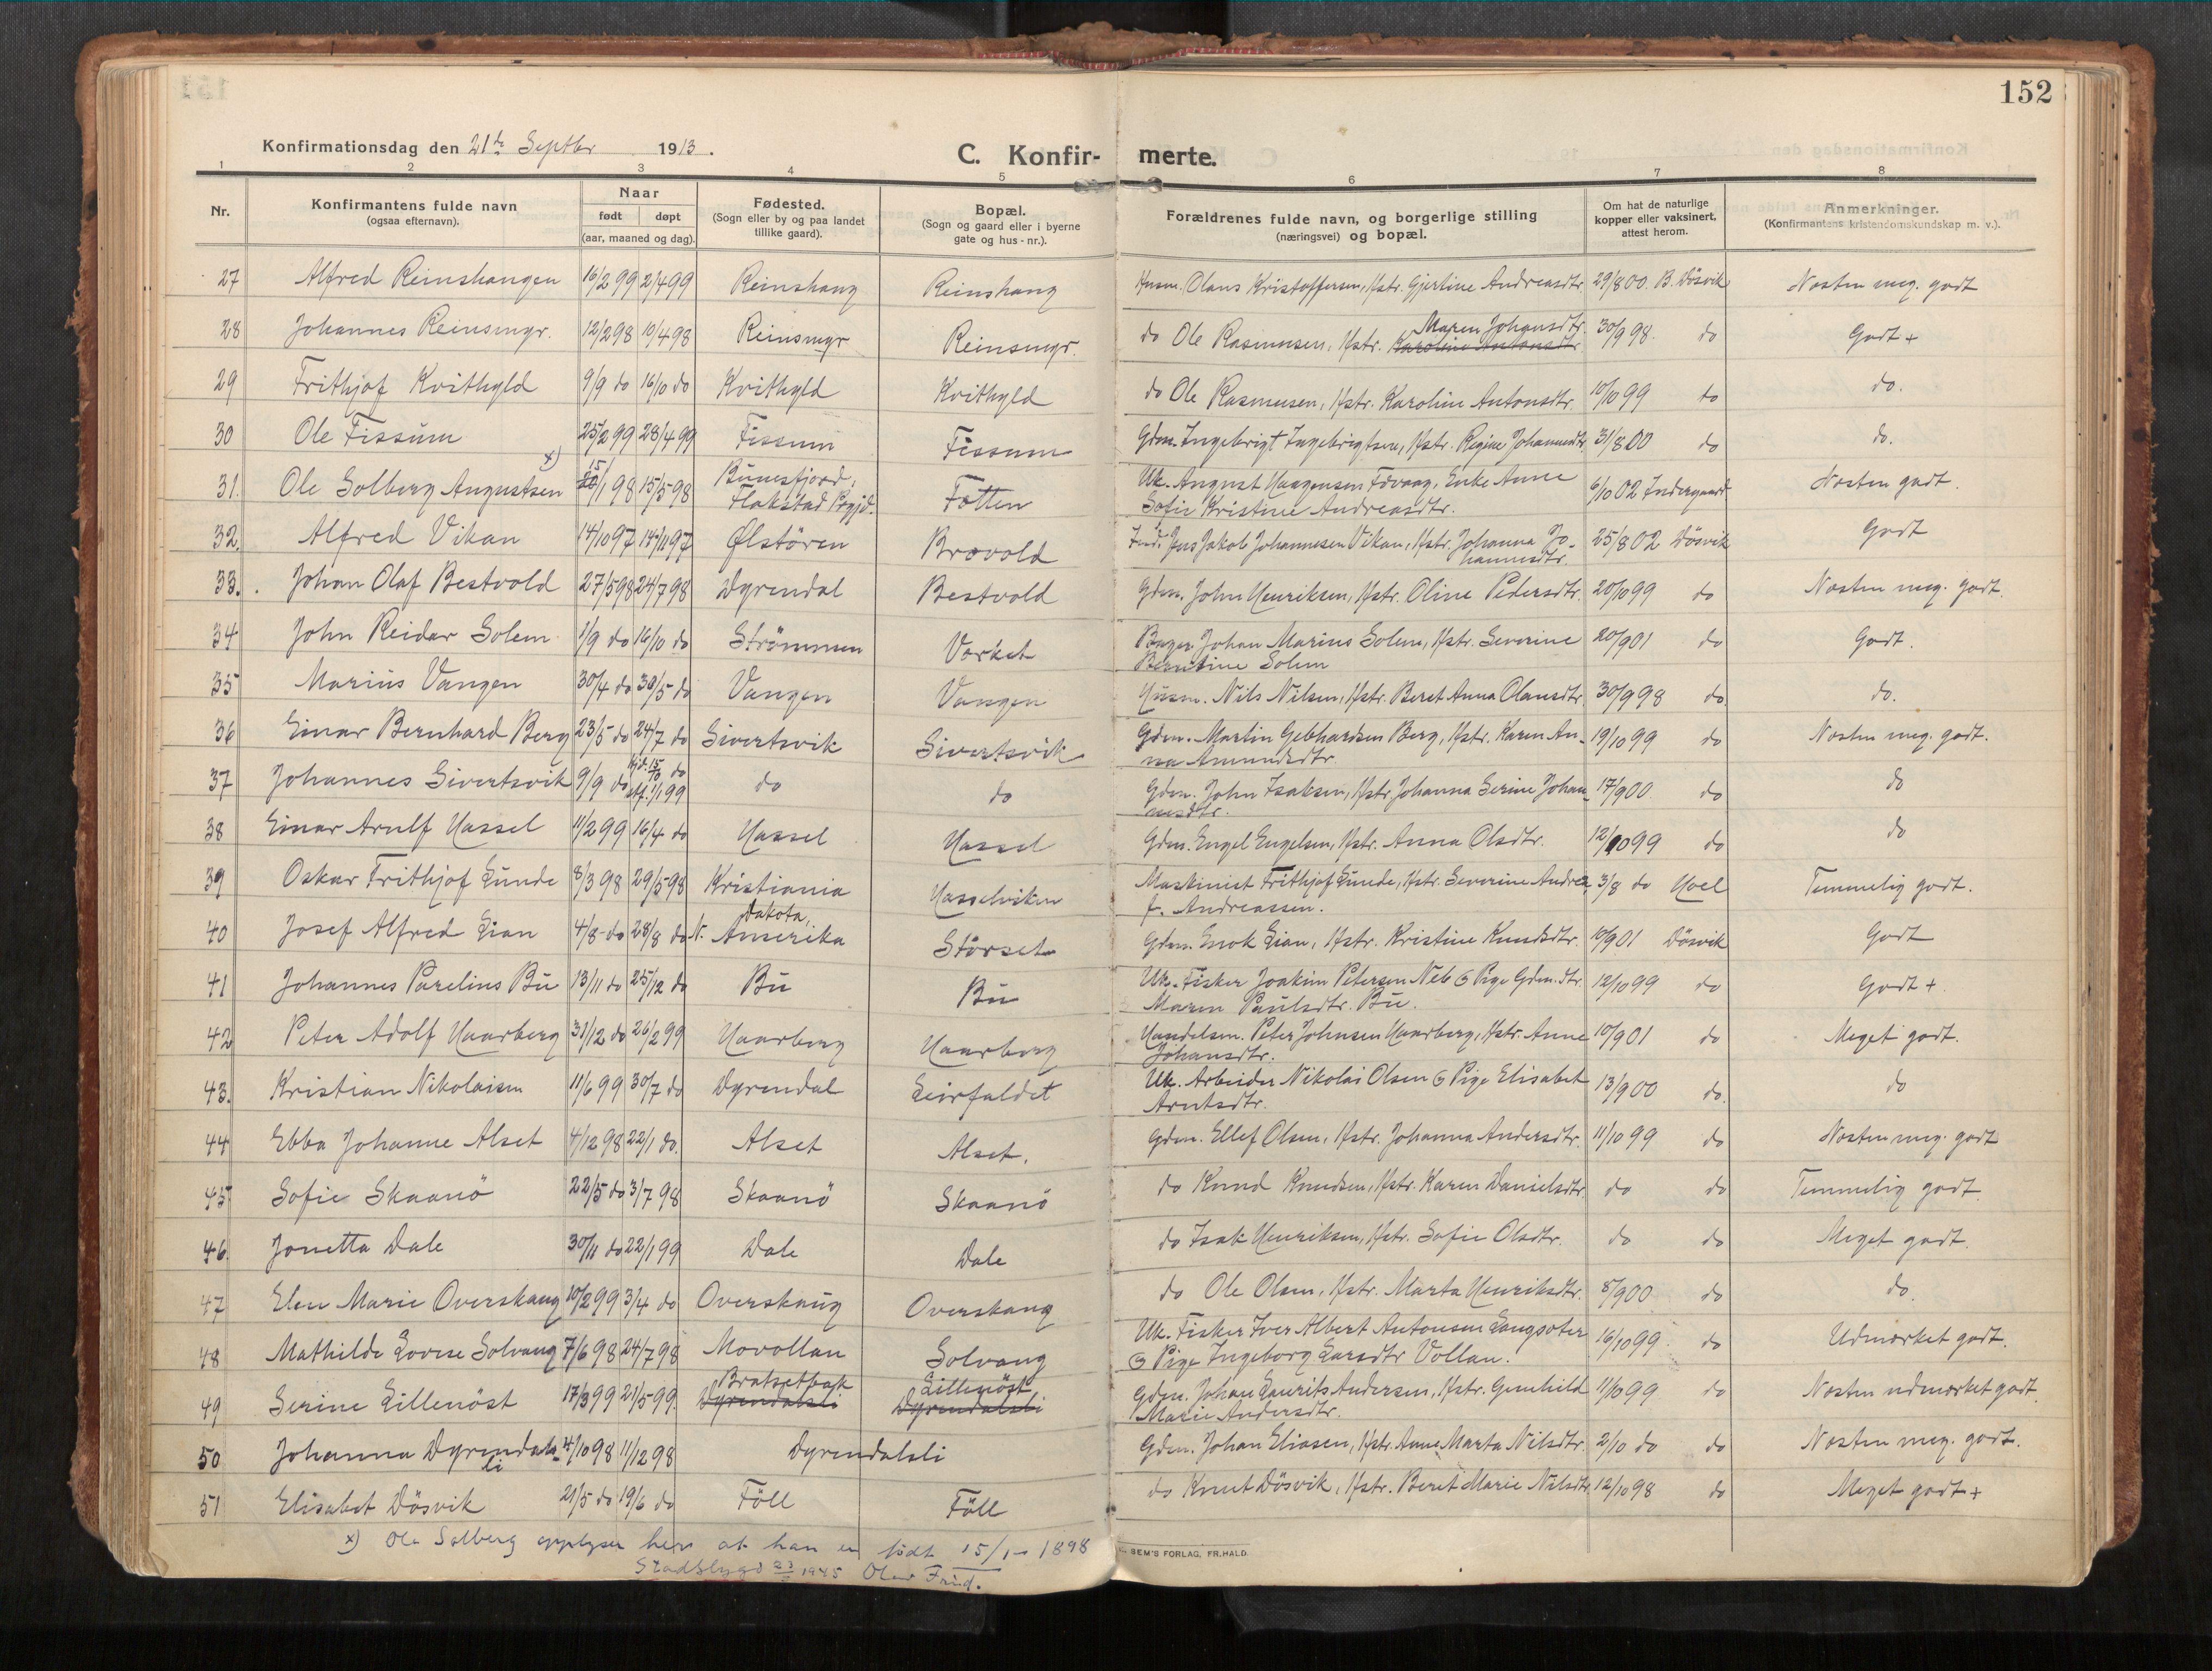 152
Konfirmationsdag den 21de Septbr 1913.
C. Konfirmerte.
1 2 3 4 5 6 7 8
Nr. | Konfirmantens fulde navn (ogsaa efternavn). | Naar født | døpt (aar, maaned og dag). | Fødested. (Sogn eller by og paa landet tillike gaard). | Bopæl. (Sogn og gaard eller i byerne gate og hus-nr.). | Forældrenes fulde navn, og borgerlige stilling (næringsvei) og bopæl. | Om hat de naturlige kopper eller vaksinert, attest herom. | Anmerkninger. (Konfirmantens kristendomskundskap m. v.).
27 Alfred Reinshaugen 16/2 99 2/4 99 Reinshaug Reinshaug Husm. Olaus Kristoffersen, Hstr. Gjertine Andreasdtr. 29/8 00 B. Dösvik Næsten meg. godt
28 Johannes Reinsmyr. 12/2 98 10/4 98 Reinsmyr Reinsmyr. do Ole Rasmussen, Hstr. Karoline Antonsdtr Maren Johansdtr. 30/9 98. do Godt +
29 Frithjof Kvithyld 9/9 do 16/10 do Kvithyld Kvithyld do Ole Rasmussen, Hstr. Karoline Antonsdtr. 10/10 99 do do.
30 Ole Fissum 25/2 99 28/4 99 Fissum Fissum Gdm. Ingebrigt Ingebrigtsen, Hstr. Regine Johannesdtr. 31/8 00 do do.
31. Ole Solberg Augustsen x) 15/1 98 15/5 98 Bunesfjord, Flakstad Prgjd. Fötten Uk. August Haagensen Foraag, Enke Anne Sofie Kristine Andreasdtr. 6/10 02 Indergaard Næsten godt.
32. Alfred Vikan 14/10 97 14/11 97 Ølstören Brovold Ind. Jens Jakob Johannesen Vikan, Hstr. Johanna Johannesdtr. 25/8 02 Dösvik Godt
33. Johan Olaf Bestvold 27/5 98 24/7 98 Dyrendal Bestvold Gdm. John Henriksen, Hstr. Oline Pedersdtr. 20/10 99 do Næsten meg. godt.
34 John Reidar Solem 1/9 do 16/10 do Strömmen Værket Bager Johan Marius Solem, Hstr. Severine Berntine Solem 20/9 01 do Godt.
35 Marius Vangen 30/4 do 30/5 do Vangen Vangen Husm. Nils Nilsen, Hstr. Beret Anna Olausdtr. 30/9 98 do. do.
36 Einar Bernhard Berg 23/5 do 24/7 do Sivertsvik Sivertsvik Gdm. Martin Gebhardsen Berg, Hstr. Karen Anna Amundsdtr. 19/10 99 do Næsten meg. godt.
37 Johannes Sivertsvik 9/9 do hjd. 15/10 do stf. 1/1 99 do do Gdm. John Isaksen, Hstr. Johanna Serine Johannesdtr. 17/9 00 do do
38 Einar Arnlf Hassel 11/2 99 16/4 do Hassel Hassel Gdm. Engel Engelsen, Hstr. Anna Olsdtr. 12/10 99 do do
39 Oskar Frithjof Lunde 8/3 98 29/5 98 Kristiania Hasselviken Maskinist Frithjof Lunde, Hstr. Severine Andrea f. Andreassen. 3/8 do Hoel Temmelig godt.
40 Josef Alfred Lian 4/8 do 28/8 do Dakota, N. Amerika Störset Gdm. Enok Lian, Hstr. Kristine Knudsdtr. 10/9 01 Dösvik Godt
41 Johannes Parelius Bu 13/11 do 25/12 do Bu Bu Uk. Fisker Joakim Petersen Neb & Pige Gdm.dtr. Maren Paulsdtr. Bu. 12/10 99 do Godt +
42 Peter Adolf Haarberg 31/12 do 26/2 99 Haarberg Haarberg Handelsm. Peter Johnsen Haarberg, Hstr. Anne Johansdtr. 10/9 01 do Meget godt.
43. Kristian Nikolaisen 11/6 99 30/7 do Dyrendal Leirfaldet Uk. Arbeider Nikolai Olsen & Pige Elisabet Arntsdtr. 13/9 00 do. do
44 Ebba Johanne Alset 4/12 98 22/1 do. Alset Alset. Gdm. Ellef Olsen, Hstr. Johanna Andersdtr. 11/10 99 do Næsten meg. godt
45 Sofie Skaanö 22/5 do 3/7 98 Skaanö Skaanö do Knud Knudsen, Hstr. Karen Danielsdtr. do do Temmelig godt.
46. Jonetta Dale 30/11 do 22/1 99 Dale Dale do Isak Henriksen, Hstr. Sofie Olsdtr. do do Meget godt.
47 Elen Marie Overskaug 10/2 99 3/4 do Overskaug Overskaug do Ole Olsen, Hstr. Marta Henriksdtr. 8/9 00 do do.
48 Mathilde Lovise Solvang 7/6 98 24/7 98 Movollan Solvang Uk. Fisker Iver Albert Antonsen Langsæter & Pige Ingeborg Larsdtr Vollan. 16/10 99 do Udmærket godt.
49 Serine Lillenöst 17/3 99 21/5 99. Bratsetbak Dyrendalsli Lillenöst Dyrendalsli Gdm. Johan Laurits Andersen, Hstr. Gunhild Marie Andersdtr. 11/10 99 do Næsten udmærket godt.
50 Johanna Dyrendalsli 4/10 98 11/12 98 Dyrendalsli Gdm. Johan Eliasen, Hstr. Anne Marta Nilsdtr. 2/10 do do Næsten meg. godt.
51 Elisabet Dösvik 21/5 do 19/6 do Föll Föll do Knut Dösvik, Hstr. Beret Marie Nilsdtr. 12/10 98 do Meget godt +
x) Ole Solberg opplyser her at han er født 15/1- 1898
Stadsbygd 1945
SEM'S FORLAG, FR.HALD.